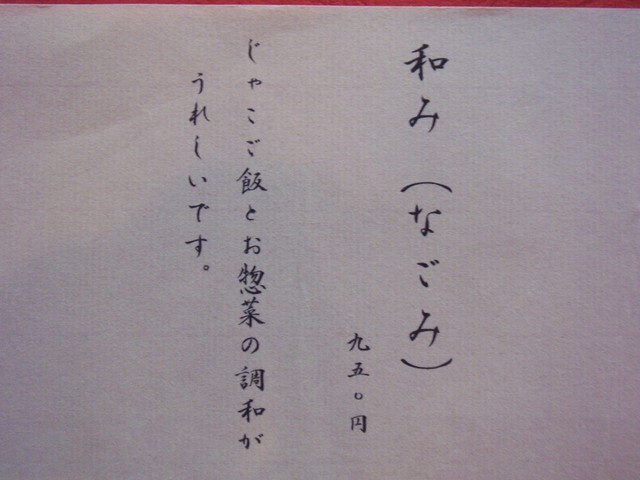 和み（なごみ）
九五〇円
じゃこご飯とお惣菜の調和が
うれしいです。